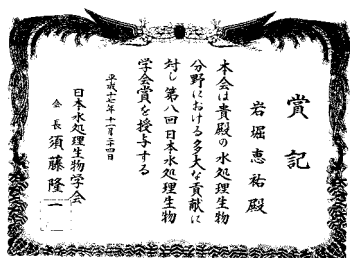 賞記
岩堀恵祐殿
本会は貴殿の水処理生物
分野における多大な貢献に
対し第八回日本水処理生物
学会賞を授与する
平成十七年十一月二十四日
日本水処理生物学会
会長須藤隆一